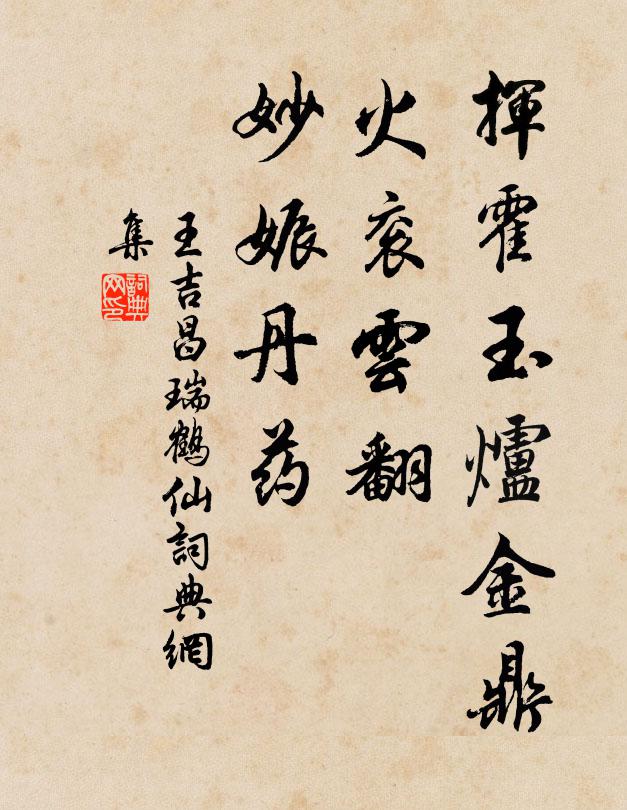 揮霍玉爐金鼎
火衮雲翻
妙娠丹药
王吉昌瑞鶴仙詞典網
集
詞典
网印